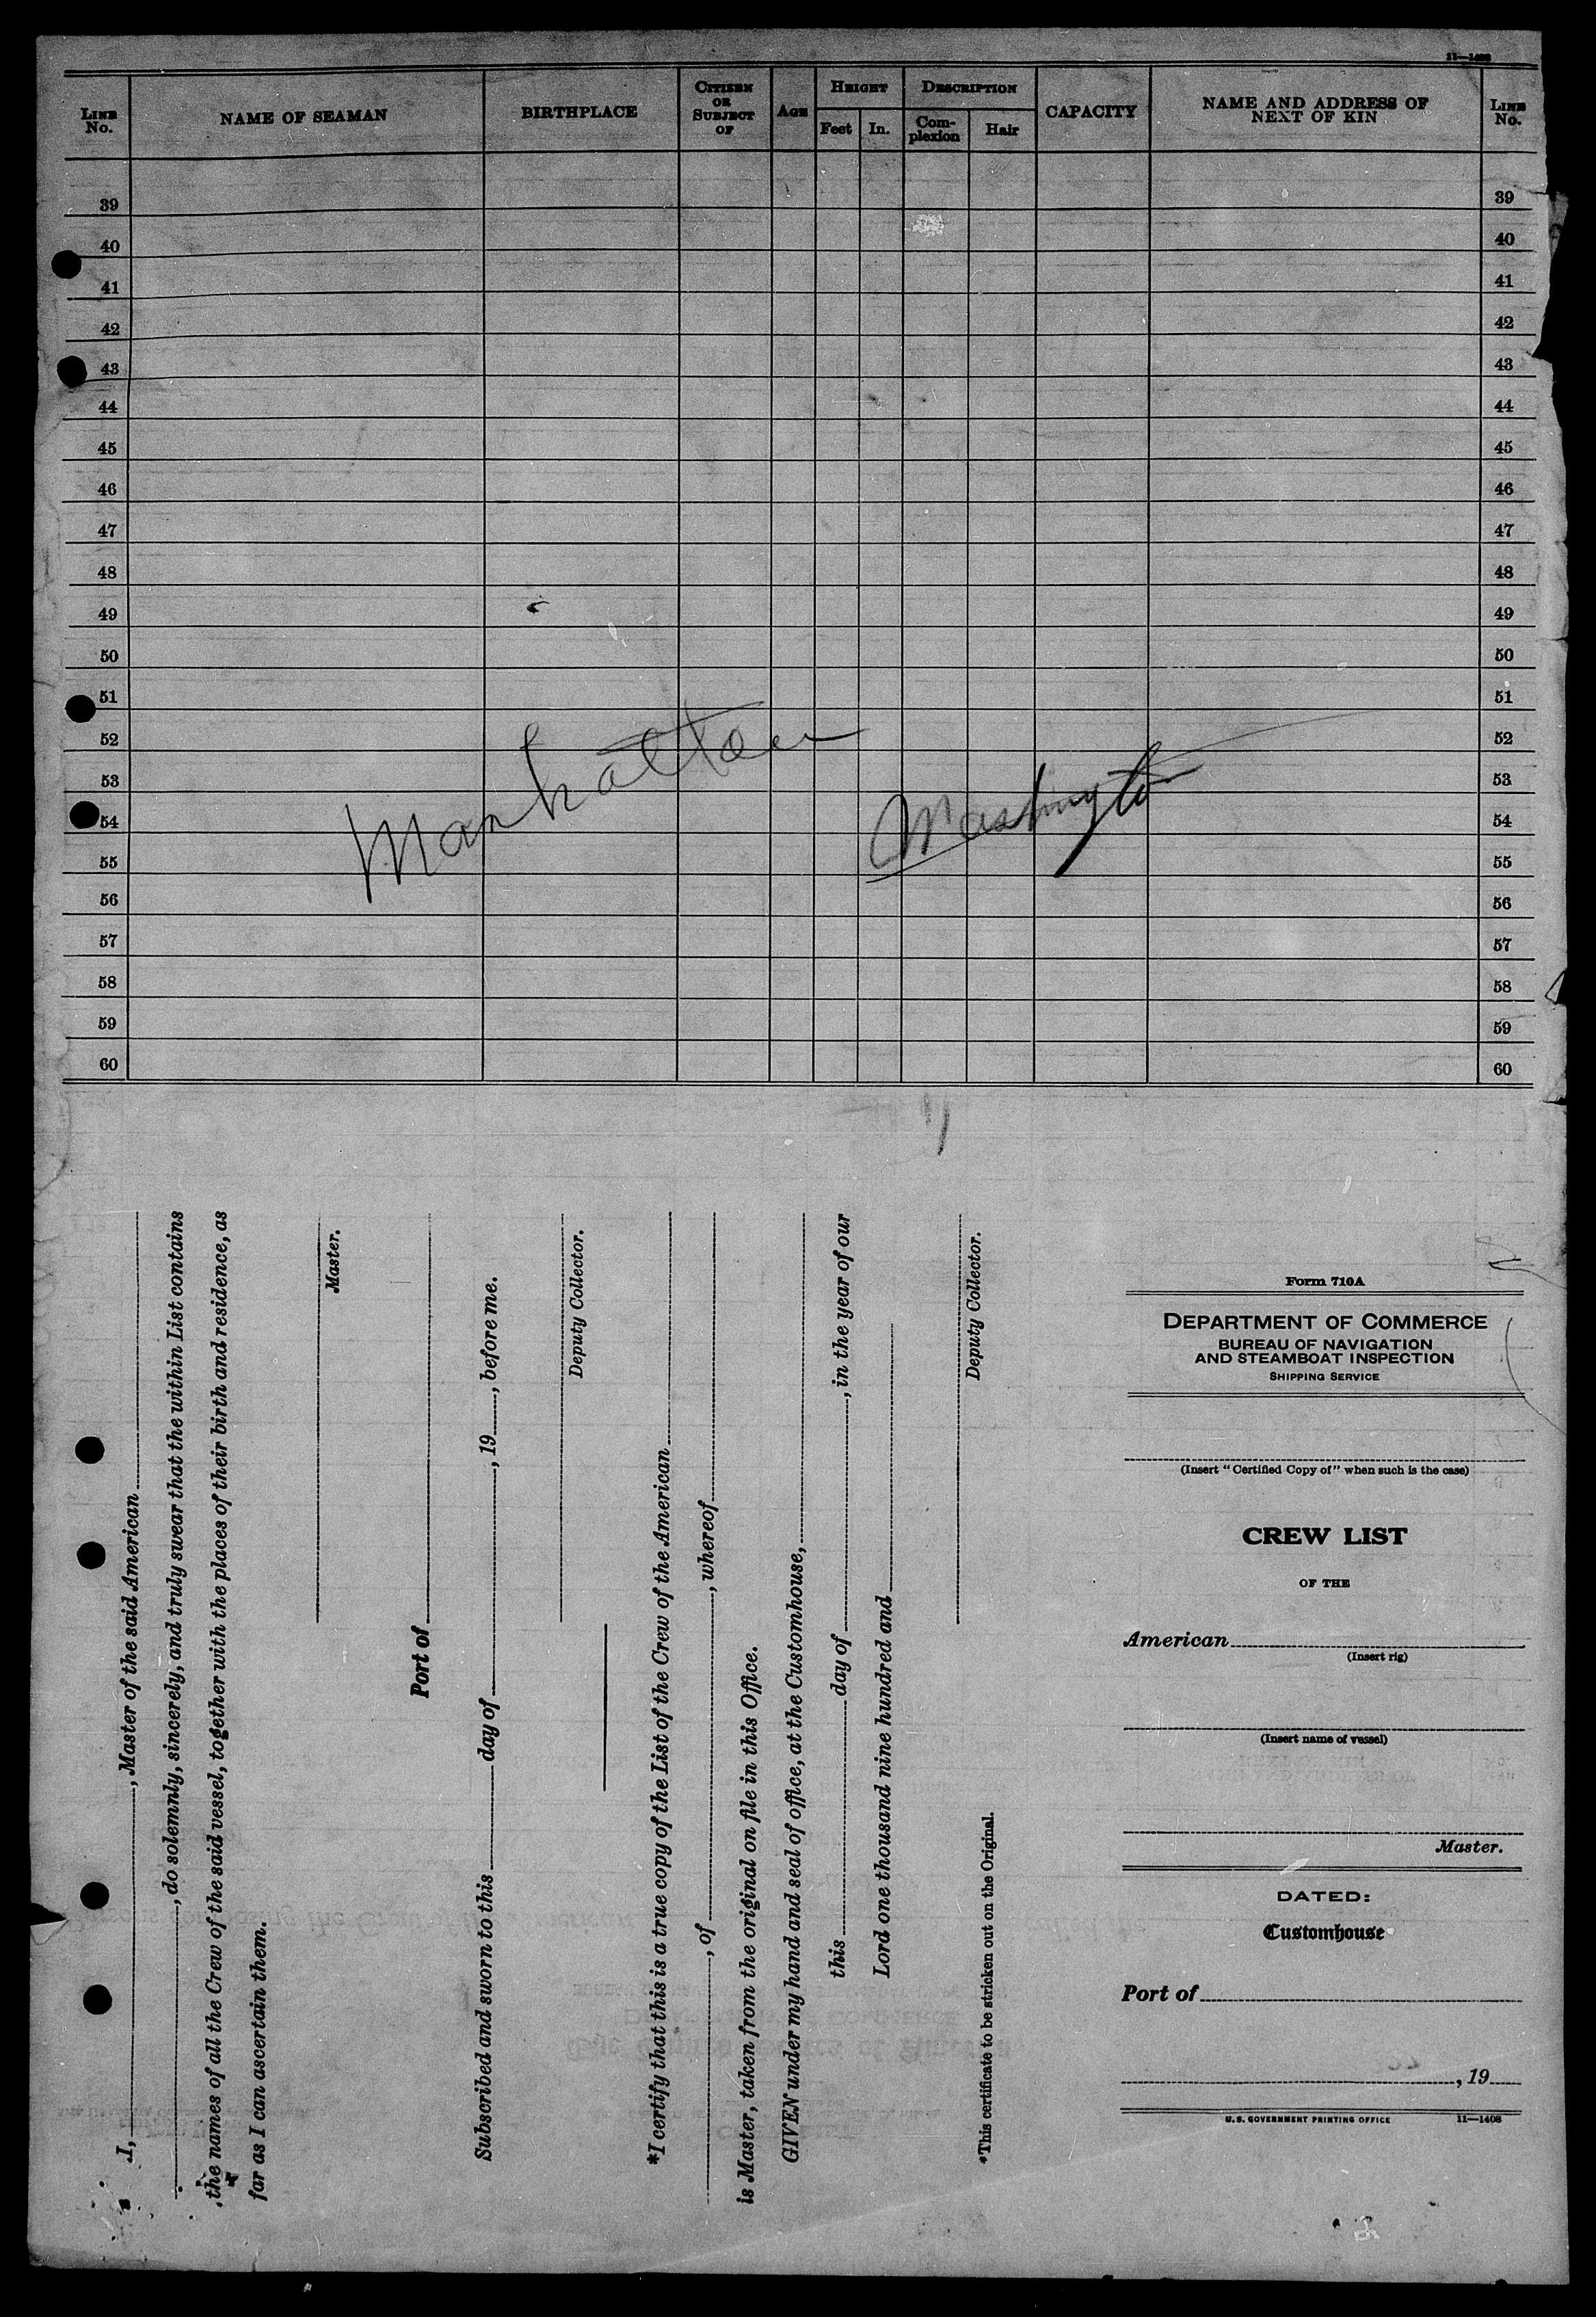 11—1408
LINE No. NAME OF SEAMAN BIRTHPLACE CITIZEN OR SUBJECT OF AGE HEIGHT Feet In. DESCRIPTION Com-plexion Hair CAPACITY NAME AND ADDRESS OF NEXT OF KIN LINE No.
39 39
40 40
41 41
42 42
43 43
44 44
45 45
46 46
47 47
48 48
49 49
50 50
51 51
52 52
53 53
54 54
55 55
56 56
57 57
58 58
59 59
60 60
Manhattan
Washington
I, , Master of the said American
, do solemnly, sincerely, and truly swear that the within List contains
the names of all the Crew of the said vessel, together with the places of their birth and residence, as
far as I can ascertain them.
Master.
Port of
Subscribed and sworn to this day of , 19 , before me.
Deputy Collector.
*I certify that this is a true copy of the List of the Crew of the American
, of , whereof
is Master, taken from the original on file in this Office.
GIVEN under my hand and seal of office, at the Customhouse,
this day of , in the year of our
Lord one thousand nine hundred and
Deputy Collector.
*This certificate to be stricken out on the Original.
Form 710A
DEPARTMENT OF COMMERCE
BUREAU OF NAVIGATION
AND STEAMBOAT INSPECTION
SHIPPING SERVICE
(Insert "Certified Copy of" when such is the case)
CREW LIST
OF THE
American
(Insert rig)
(Insert name of vessel)
Master.
DATED:
Customhouse
Port of
, 19
U. S. GOVERNMENT PRINTING OFFICE 11—1408